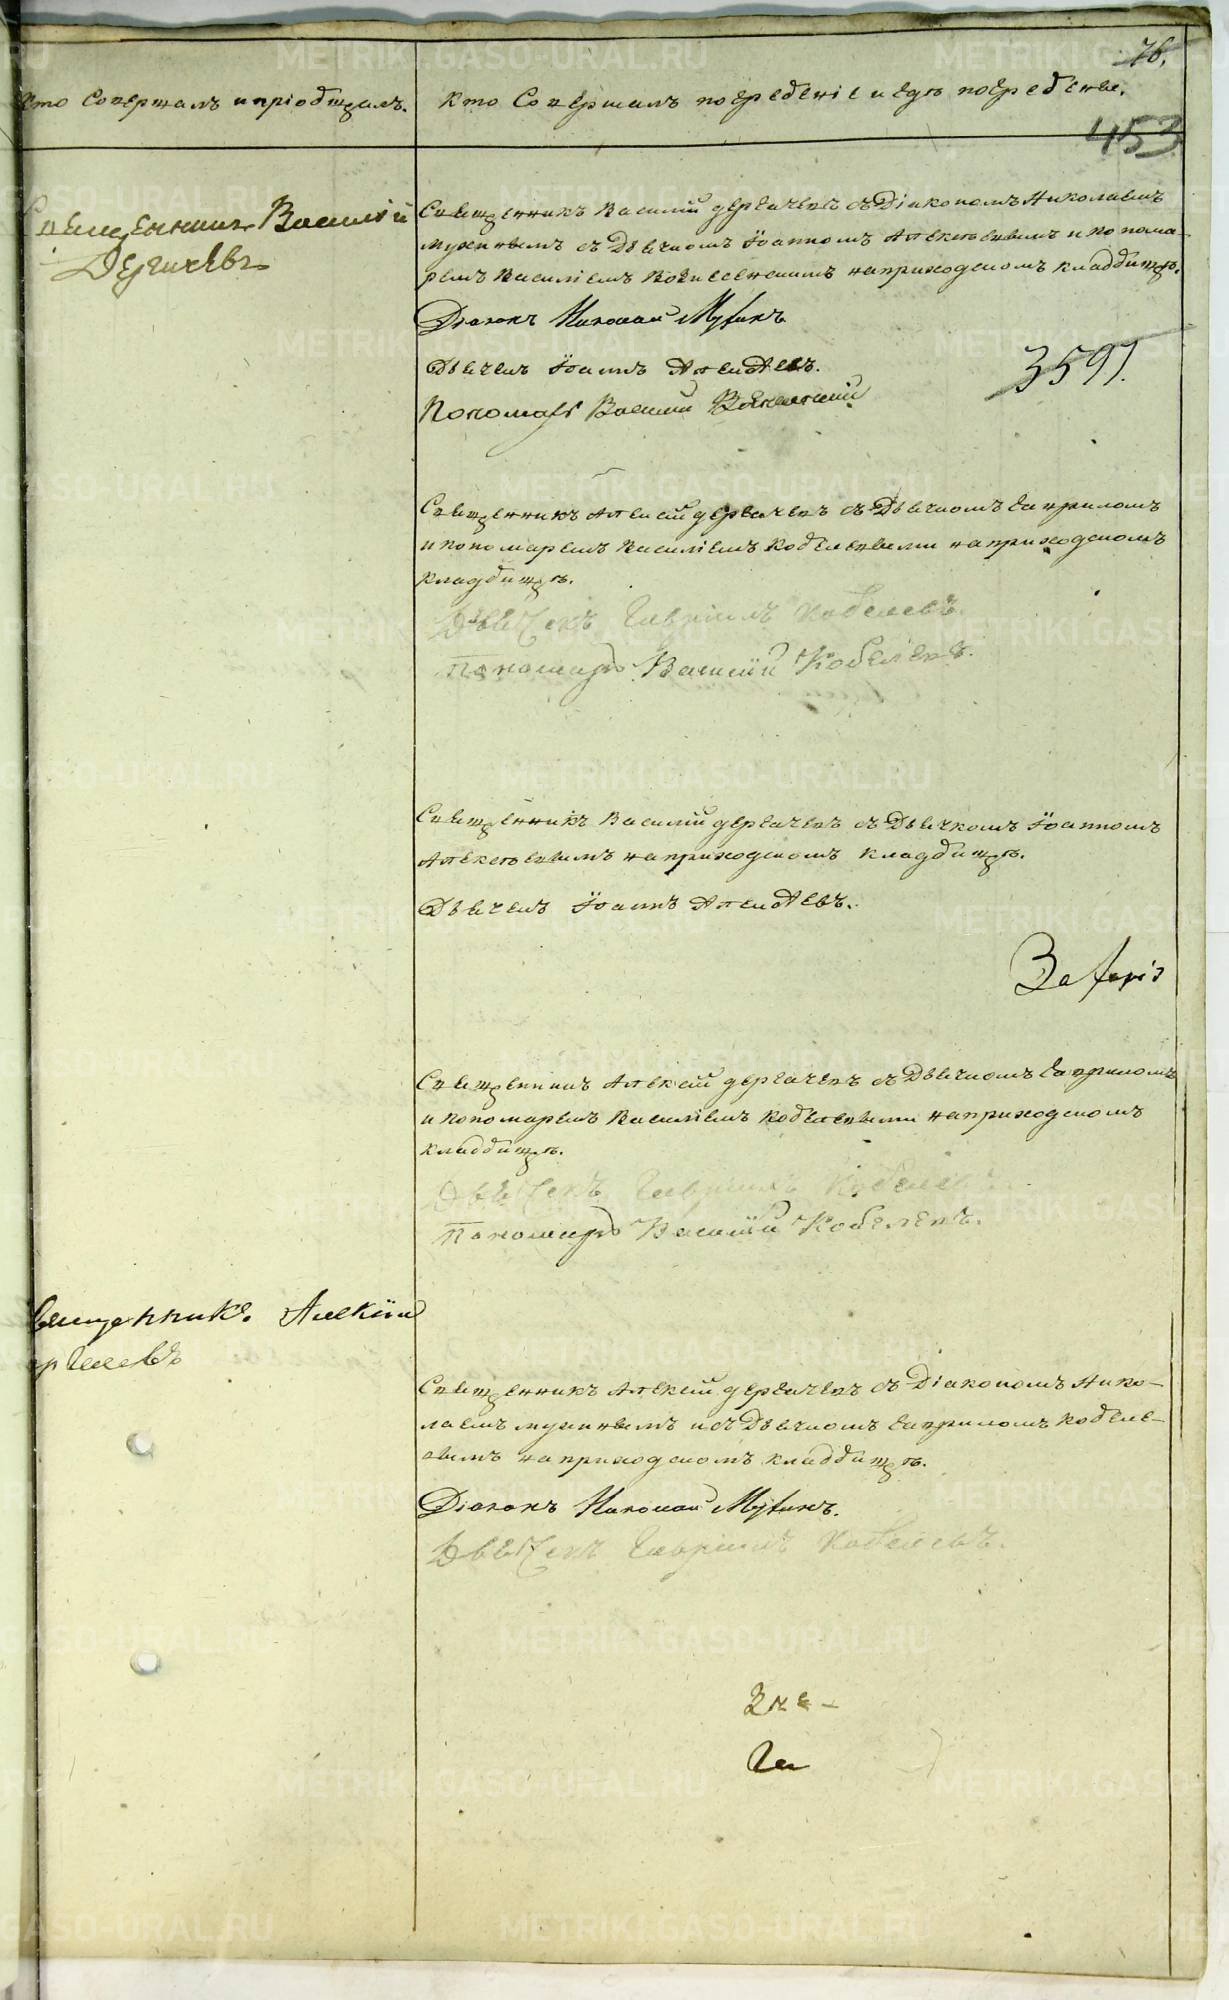 76.
Кто Совершалъ и пріобщалъ.
Кто Совершалъ погребеніе и гдѣ погребены.
453
Священникъ Василій
Дергачевъ
Священникъ Василій дергачевъ съ Діакономъ Николаемъ
мухинымъ съ Дьячкомъ Іоанномъ Алексѣевымъ и понома-
ремъ Василіемъ на приходскомъ кладбищѣ.
Діаконъ Николай Мухинъ
Дьячекъ Іоаннъ Алексѣевъ.
Пономарь Василій
3591.
Священникъ Алексій дергачевъ съ Дьячкомъ Гавриломъ
и пономаремъ Василіемъ Кобелевыми на приходскомъ
кладбищѣ.
Дьячекъ Гавріилъ Кобелевъ.
Пономарь Василій Кобелевъ.
Священникъ Василій дергачевъ съ Дьячкомъ Іоанномъ
Алексѣевымъ на приходскомъ кладбищѣ.
Дьячекъ Іоаннъ Алексѣевъ.
Священникъ Алексій дергачевъ съ Дьячкомъ Гавриломъ
и пономаремъ Василіемъ Кобелевыми на приходскомъ
кладбищѣ.
Дьячекъ Гавріилъ Кобелевъ
Пономарь Василій Кобелевъ.
Священникъ Алексій
ргачевъ
Священникъ Алексій дергачевъ съ Діакономъ Нико-
лаемъ мухинымъ и съ Дьячкомъ Гавриломъ Кобеле-
вымъ на приходскомъ кладбищѣ.
Діаконъ Николай Мухинъ.
Дьячекъ Гавріилъ Кобелевъ.
METRIKI.GASO-URAL.RU